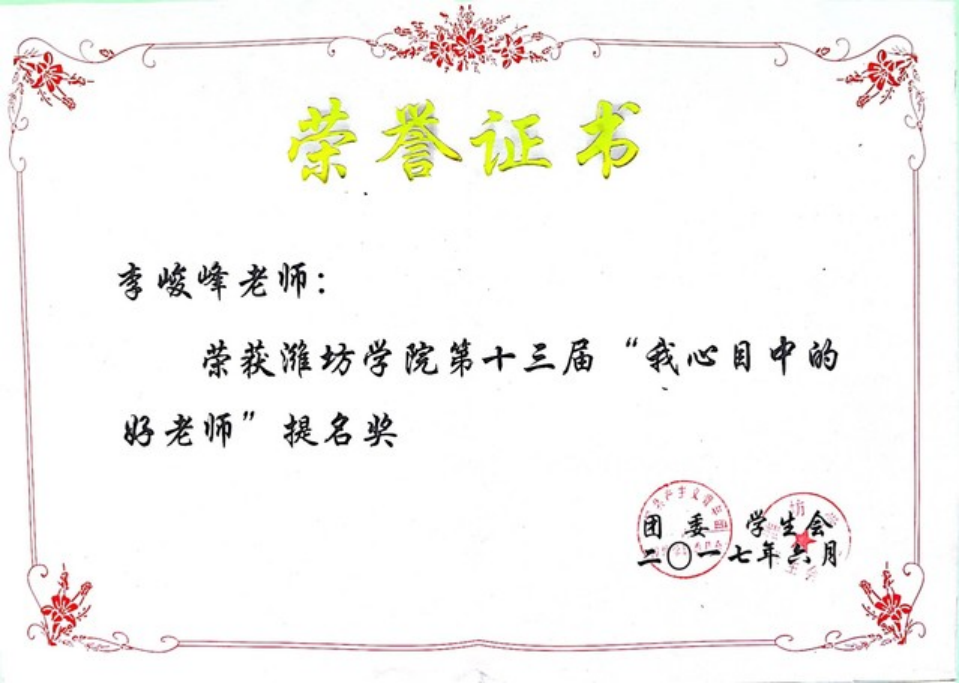 荣誉证书
李峻峰老师：
荣获潍坊学院第十三届“我心目中的
好老师”提名奖
团委 学生会
二〇一七年六月